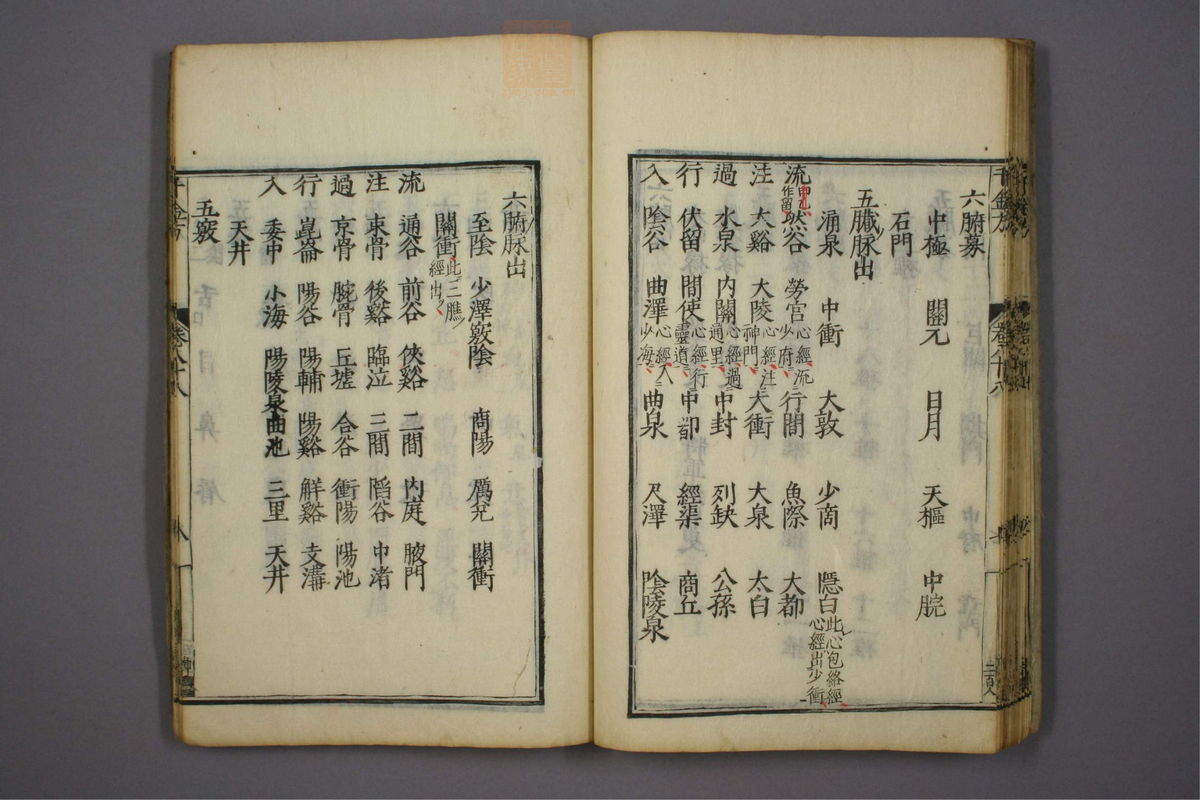 六腑募
中極 關元 日月 天樞 中脘
石門
五臓脉出
涌泉 中衝 大敦 少商 隱白此心包絡經心經出少衝
流甲乙作留 然谷 勞宮心經流少府 行間 魚際 大都
注 大谿 大陵心經注神門 大衝 大泉 太白
過 水泉 内關心經過通里 中封 列缺 公孫
行 伏留 間使心經行靈道 中郄 經渠 商丘
入 陰谷 曲澤心經入少海 曲泉 尺澤 陰陵泉
千金方 卷八十八
六腑脉出
至陰 少澤 竅陰 商陽 厲兌 關衝
關衝此三膲經出
流 通谷 前谷 俠谿 二間 内庭 腋門
注 束骨 後谿 臨泣 三間 陷谷 中渚
過 京骨 腕骨 丘墟 合谷 衝陽 陽池
行 崑崙 陽谷 陽輔 陽谿 觧谿 支溝
入 委中 小海 陽陵泉 曲池 三里 天井
天井
五竅
千金方 卷八十八